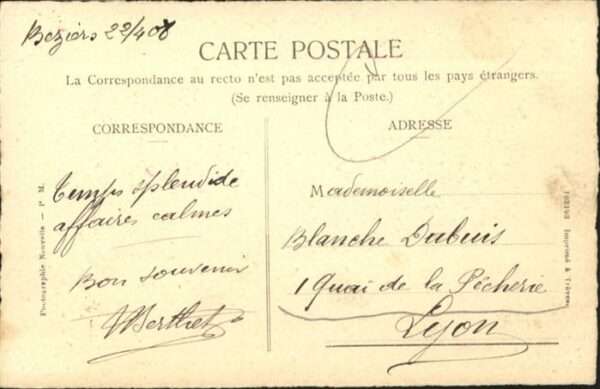 Beziers 22/4 08
CARTE POSTALE
La Correspondance au recto n'est pas acceptée par tous les pays étrangers.
(Se renseigner à la Poste.)
CORRESPONDANCE
Temps splendide
affaires calmes
Bon souvenir
Berthet
ADRESSE
Mademoiselle
Blanche Dubuis
1 Quai de la Pêcherie
Lyon
Photographie Nouvelle — P. M.
Imprimé à Trèves